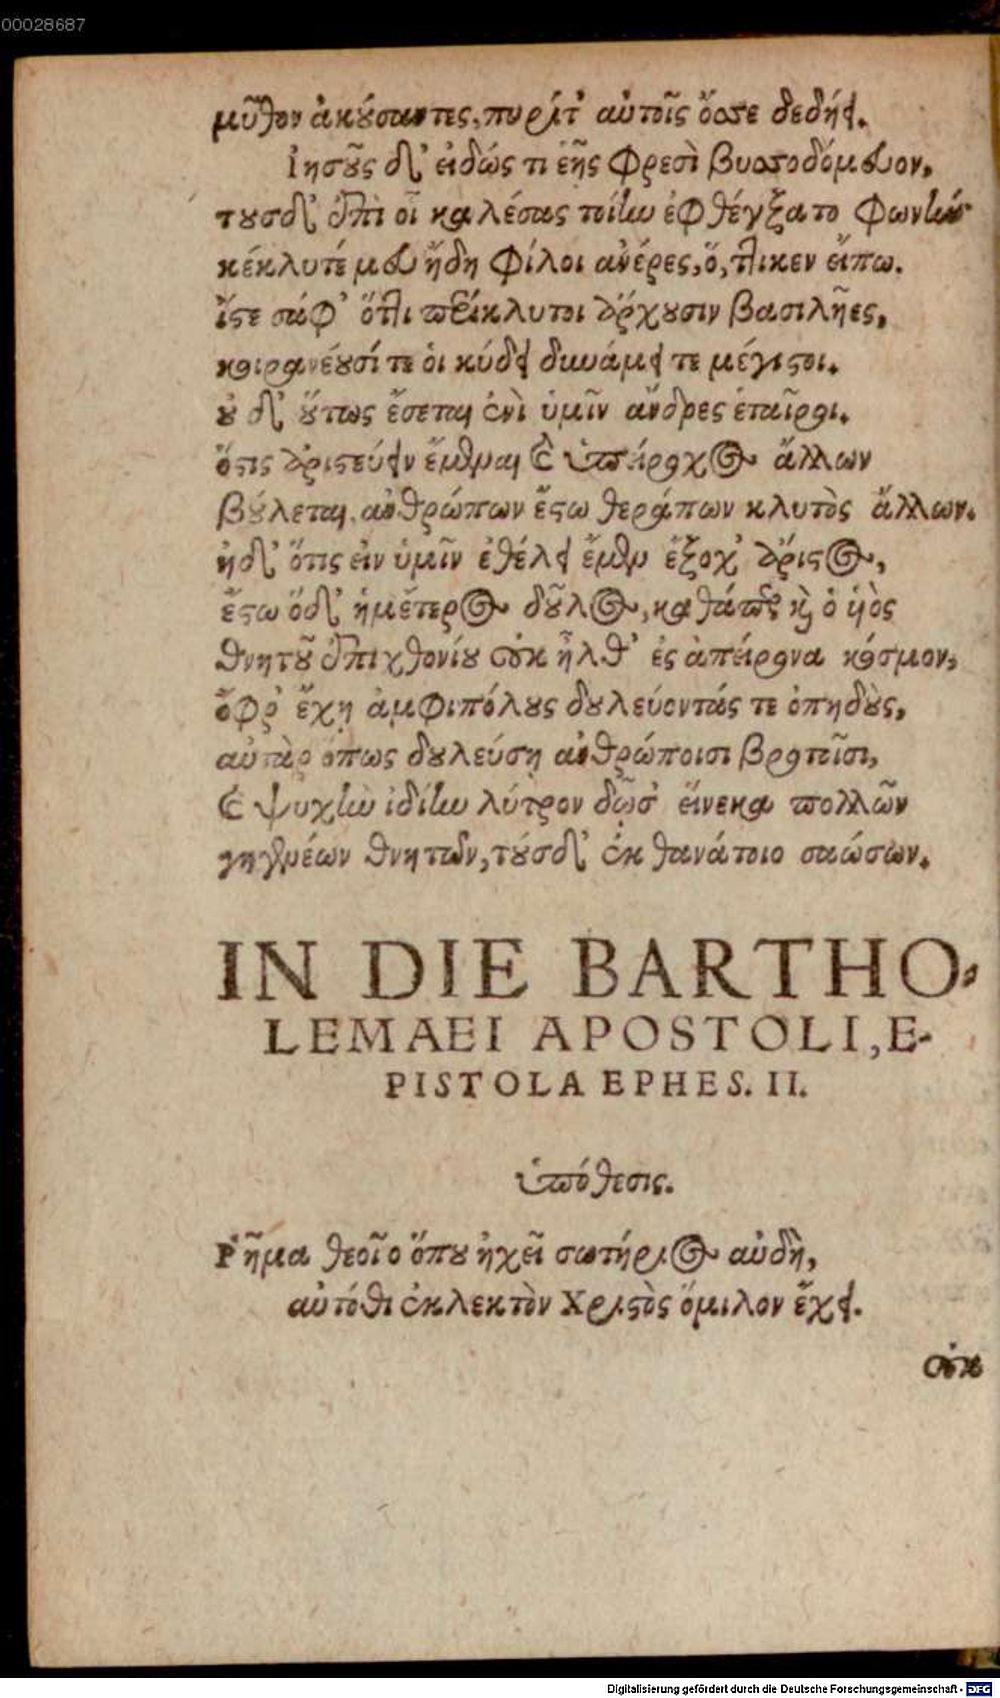 00028687
μῦθον ἀκούσαντες, πυρὶ τ' αὐτοῖς ὄσσε δεδήει.
Ἰησοῦς δ' εἰδώς τι ἑῆς φρεσὶ βυσσοδόμευον,
τούσδ' ἐπὶ οἷ καλέσας τοίην ἐφθέγξατο φωνὴν
κέκλυτέ μευ ἤδη φίλοι ἀνέρες, ὅ, ττι κεν εἴπω.
ἴστε σάφ' ὅττι περίκλυτοι ἄρχουσιν βασιλῆες,
κοιρανέουσί τε οἱ κύδει δυνάμει τε μέγιστοι.
οὐ δ' οὕτως ἔσεται ἐνὶ ὑμῖν ἄνδρες ἑταῖροι.
ὅστις ἀριστεύειν ἔμεναι καὶ ὑπείροχος ἄλλων
βούλεται ἀνθρώπων ἔστω θεράπων κλυτὸς ἄλλων.
ἠδ' ὅστις εἰν ὑμῖν ἐθέλει ἔμεν ἔξοχ' ἄριστος,
ἔστω ὅδ' ἡμέτερος δοῦλος, καθάπερ καὶ ὁ υἱὸς
θνητοῦ ἐπιχθονίου οὐκ ἦλθ' ἐς ἀπείρονα κόσμον,
ὄφρ' ἔχῃ ἀμφιπόλους δουλεύοντάς τε ὀπηδοὺς,
αὐτὰρ ὅπως δουλεύσῃ ἀνθρώποισι βροτοῖσι,
καὶ ψυχὴν ἰδίην λύτρον δῶσ' εἵνεκα πολλῶν
γηγενέων θνητῶν, τούσδ' ἐκ θανάτοιο σαώσων.
IN DIE BARTHO-
LEMAEI APOSTOLI, E-
PISTOLA EPHES. II.
ὑπόθεσις.
Ῥῆμα θεοῖο ὅπου ἠχεῖ σωτήριος αὐδὴ,
αὐτόθι ἐκλεκτὸν Χριστὸς ὅμιλον ἔχει.
οὐκ
Digitalisierung gefördert durch die Deutsche Forschungsgemeinschaft - DFG